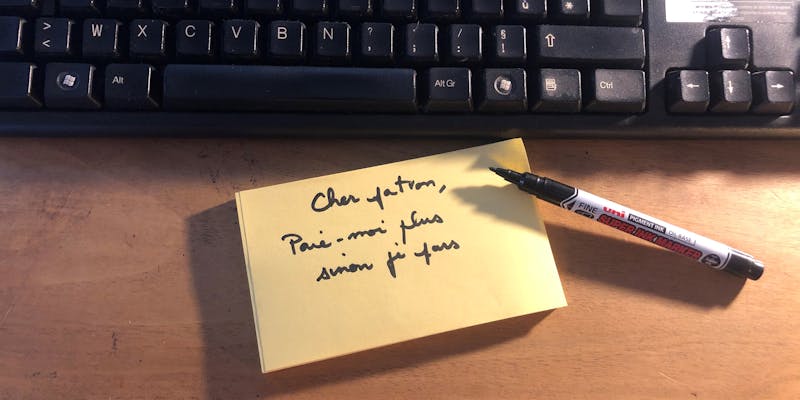 W X C V B N ? . / §
> < , ; : !
Alt Alt Gr Ctrl
Cher patron,
Paie-moi plus
sinon je pars
FINE uni PIGMENT INK OIL BASE
SUPER INK MARKER